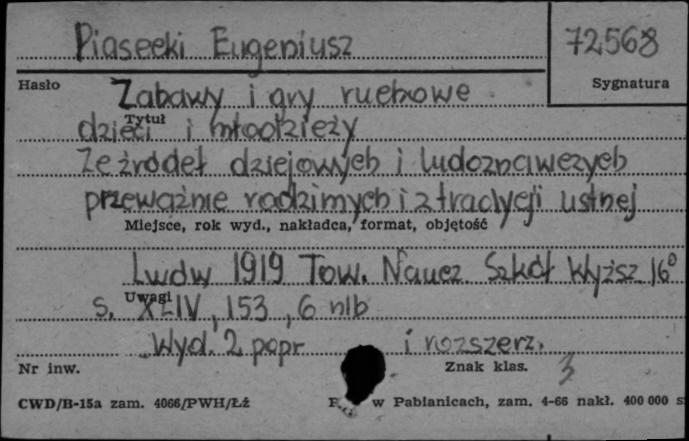 Piasecki Eugeniusz
72568
Hasło
Sygnatura
Zabawy i gry ruchowe
Tytuł
dzieci i młodzieży
Ze źródeł dziejowych i ludoznawczych
przeważnie rodzimych i z tradycji ustnej
Miejsce, rok wyd., nakładca, format, objętość
Lwów 1919 Tow. Naucz. Szkół Wyższ. 16°
Uwagi
s. XLIV, 153, 6 nlb
Wyd. 2 popr i rozszerz.
Nr inw.
Znak klas. 3
CWD/B-15a zam. 4066/PWH/Łź
w Pabianicach, zam. 4-66 nakł. 400 000 s